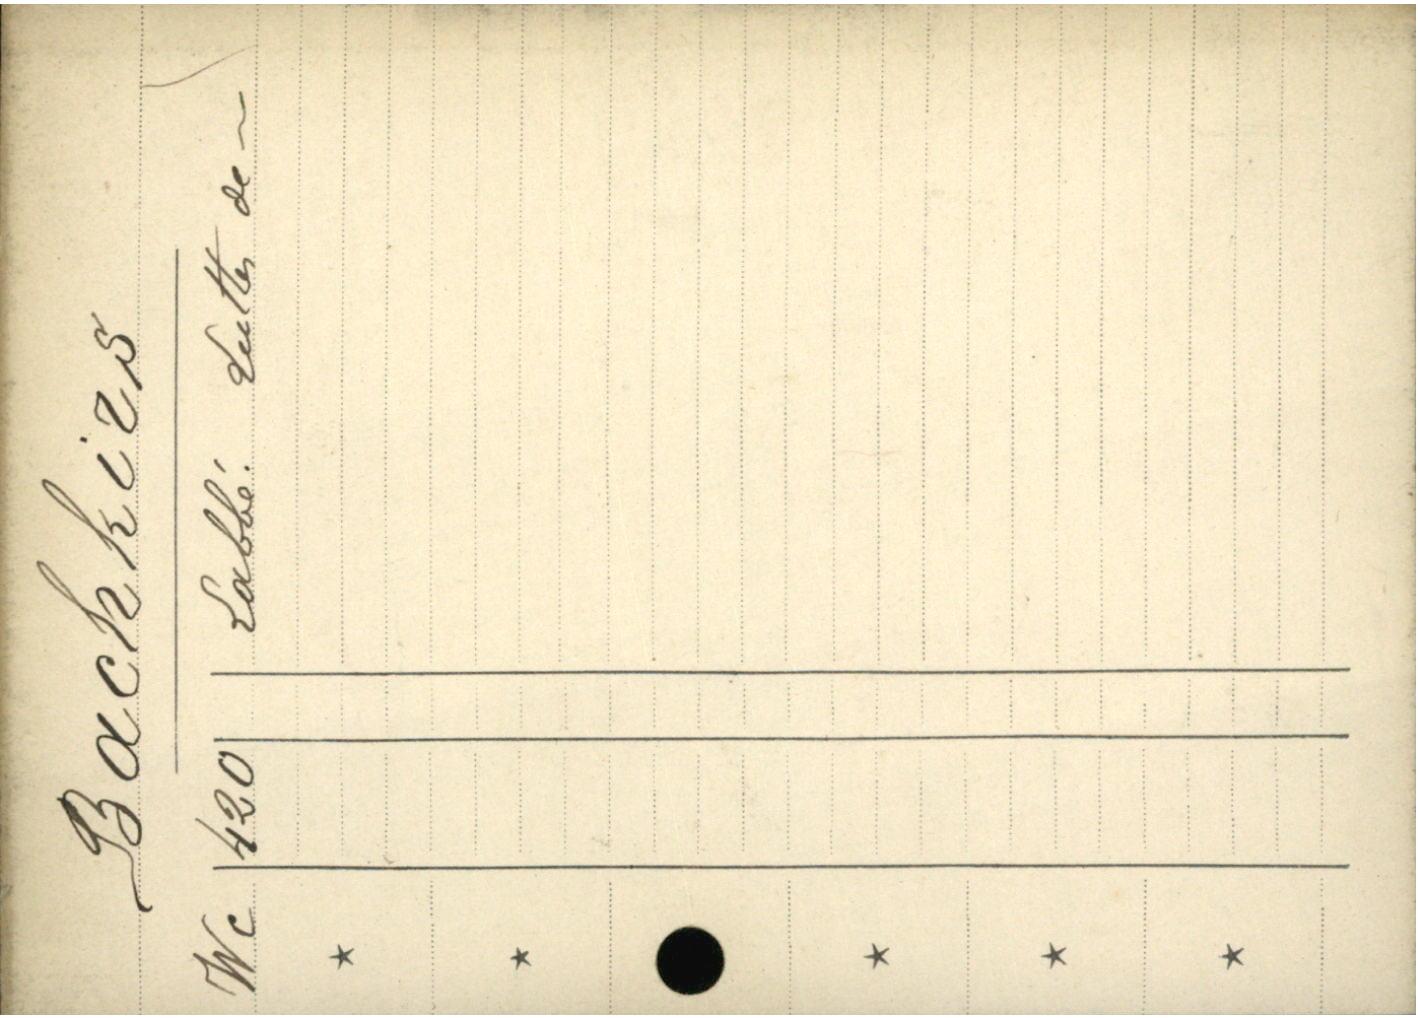 Bachkirs
Wc 420 Labbé. Luttes de ~